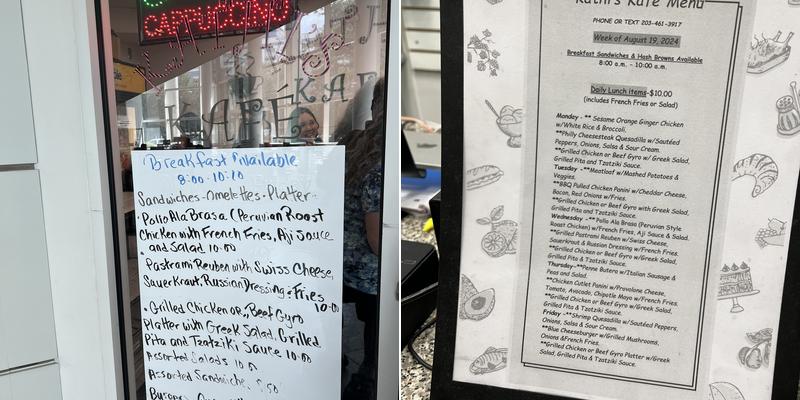 CAPPUCCINO
KAFE
Breakfast Available
8:00 - 10:20
Sandwiches - omelettes - Platter
• Pollo Ala Brasa (Peruvian Roast
Chicken with French Fries, Aji Sauce
and Salad 10.00
• Pastrami Reuben with Swiss Cheese,
Sauerkraut, Russian Dressing & Fries
10.00
• Grilled Chicken or Beef Gyro
Platter with Greek Salad, Grilled
Pita and Tzatziki Sauce 10.00
Assorted Salads
Assorted Sandwiche
Kathi's Kafe Menu
PHONE OR TEXT 203-461-3917
Week of August 19, 2024
Breakfast Sandwiches & Hash Browns Available
8:00 a.m. - 10:00 a.m.
Daily Lunch items-$10.00
(includes French Fries or Salad)
Monday - ** Sesame Orange Ginger Chicken
w/White Rice & Broccoli.
**Philly Cheesesteak Quesadilla w/Sautéed
Peppers, Onions, Salsa & Sour Cream.
**Grilled Chicken or Beef Gyro w/ Greek Salad,
Grilled Pita and Tzatziki Sauce.
Tuesday - **Meatloaf w/Mashed Potatoes &
Veggies.
**BBQ Pulled Chicken Panini w/Cheddar Cheese,
Bacon, Red Onions w/Fries.
**Grilled Chicken or Beef Gyro with Greek Salad,
Grilled Pita and Tzatziki Sauce.
Wednesday - ** Pollo Ala Brasa (Peruvian Style
Roast Chicken) w/French Fries, Aji Sauce & Salad.
**Grilled Pastrami Reuben w/Swiss Cheese,
Sauerkraut & Russian Dressing w/French Fries.
**Grilled Chicken or Beef Gyro w/Greek Salad,
Grilled Pita & Tzatziki Sauce.
Thursday-**Penne Butera w/Italian Sausage &
Peas and Salad.
**Chicken Cutlet Panini w/Provolone Cheese,
Tomato, Avocado, Chipotle Mayo w/French Fries.
**Grilled Chicken or Beef Gyro w/Greek Salad,
Grilled Pita & Tzatziki Sauce.
Friday -**Shrimp Quesadilla w/Sautéed Peppers,
Onions, Salsa & Sour Cream.
**Blue Cheeseburger w/Grilled Mushrooms,
Onions &French Fries.
**Grilled Chicken or Beef Gyro Platter w/Greek
Salad, Grilled Pita & Tzatziki Sauce.